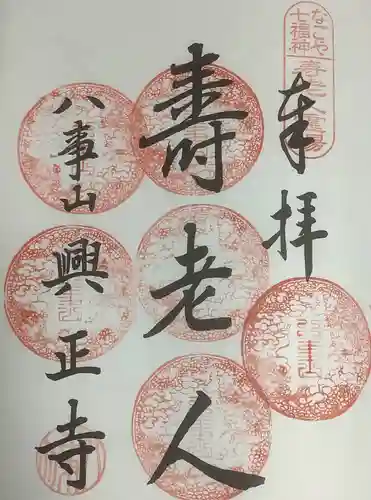 なごや
七福神
奉拝
寿老人
八事山
興正寺